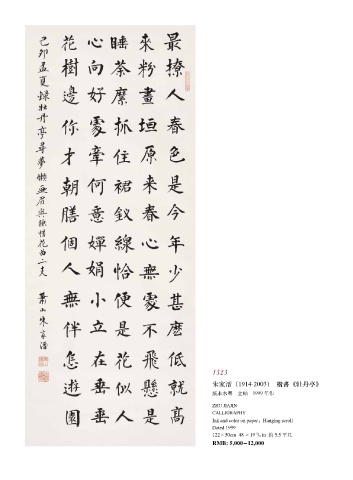 最撩人春色是今年少甚麼低就高
來粉畫垣原來春心無處不飛懸是
睡荼縻抓住裙釵線恰便是花似人
心向好處牽何意嬋娟小立在垂垂
花樹邊你才朝膳個人無伴怎遊園
己卯孟夏錄牡丹亭尋夢懶畫眉與惜花曲二支
蕭山朱家溍
1323
朱家溍（1914-2003） 楷書《牡丹亭》
紙本水墨 立軸 1999年作
ZHU JIAJIN
CALLIGRAPHY
Ink and color on paper，Hanging scroll
Dated 1999
122×50cm 48×19 5/8 in 約5.5平尺
RMB: 5,000—12,000